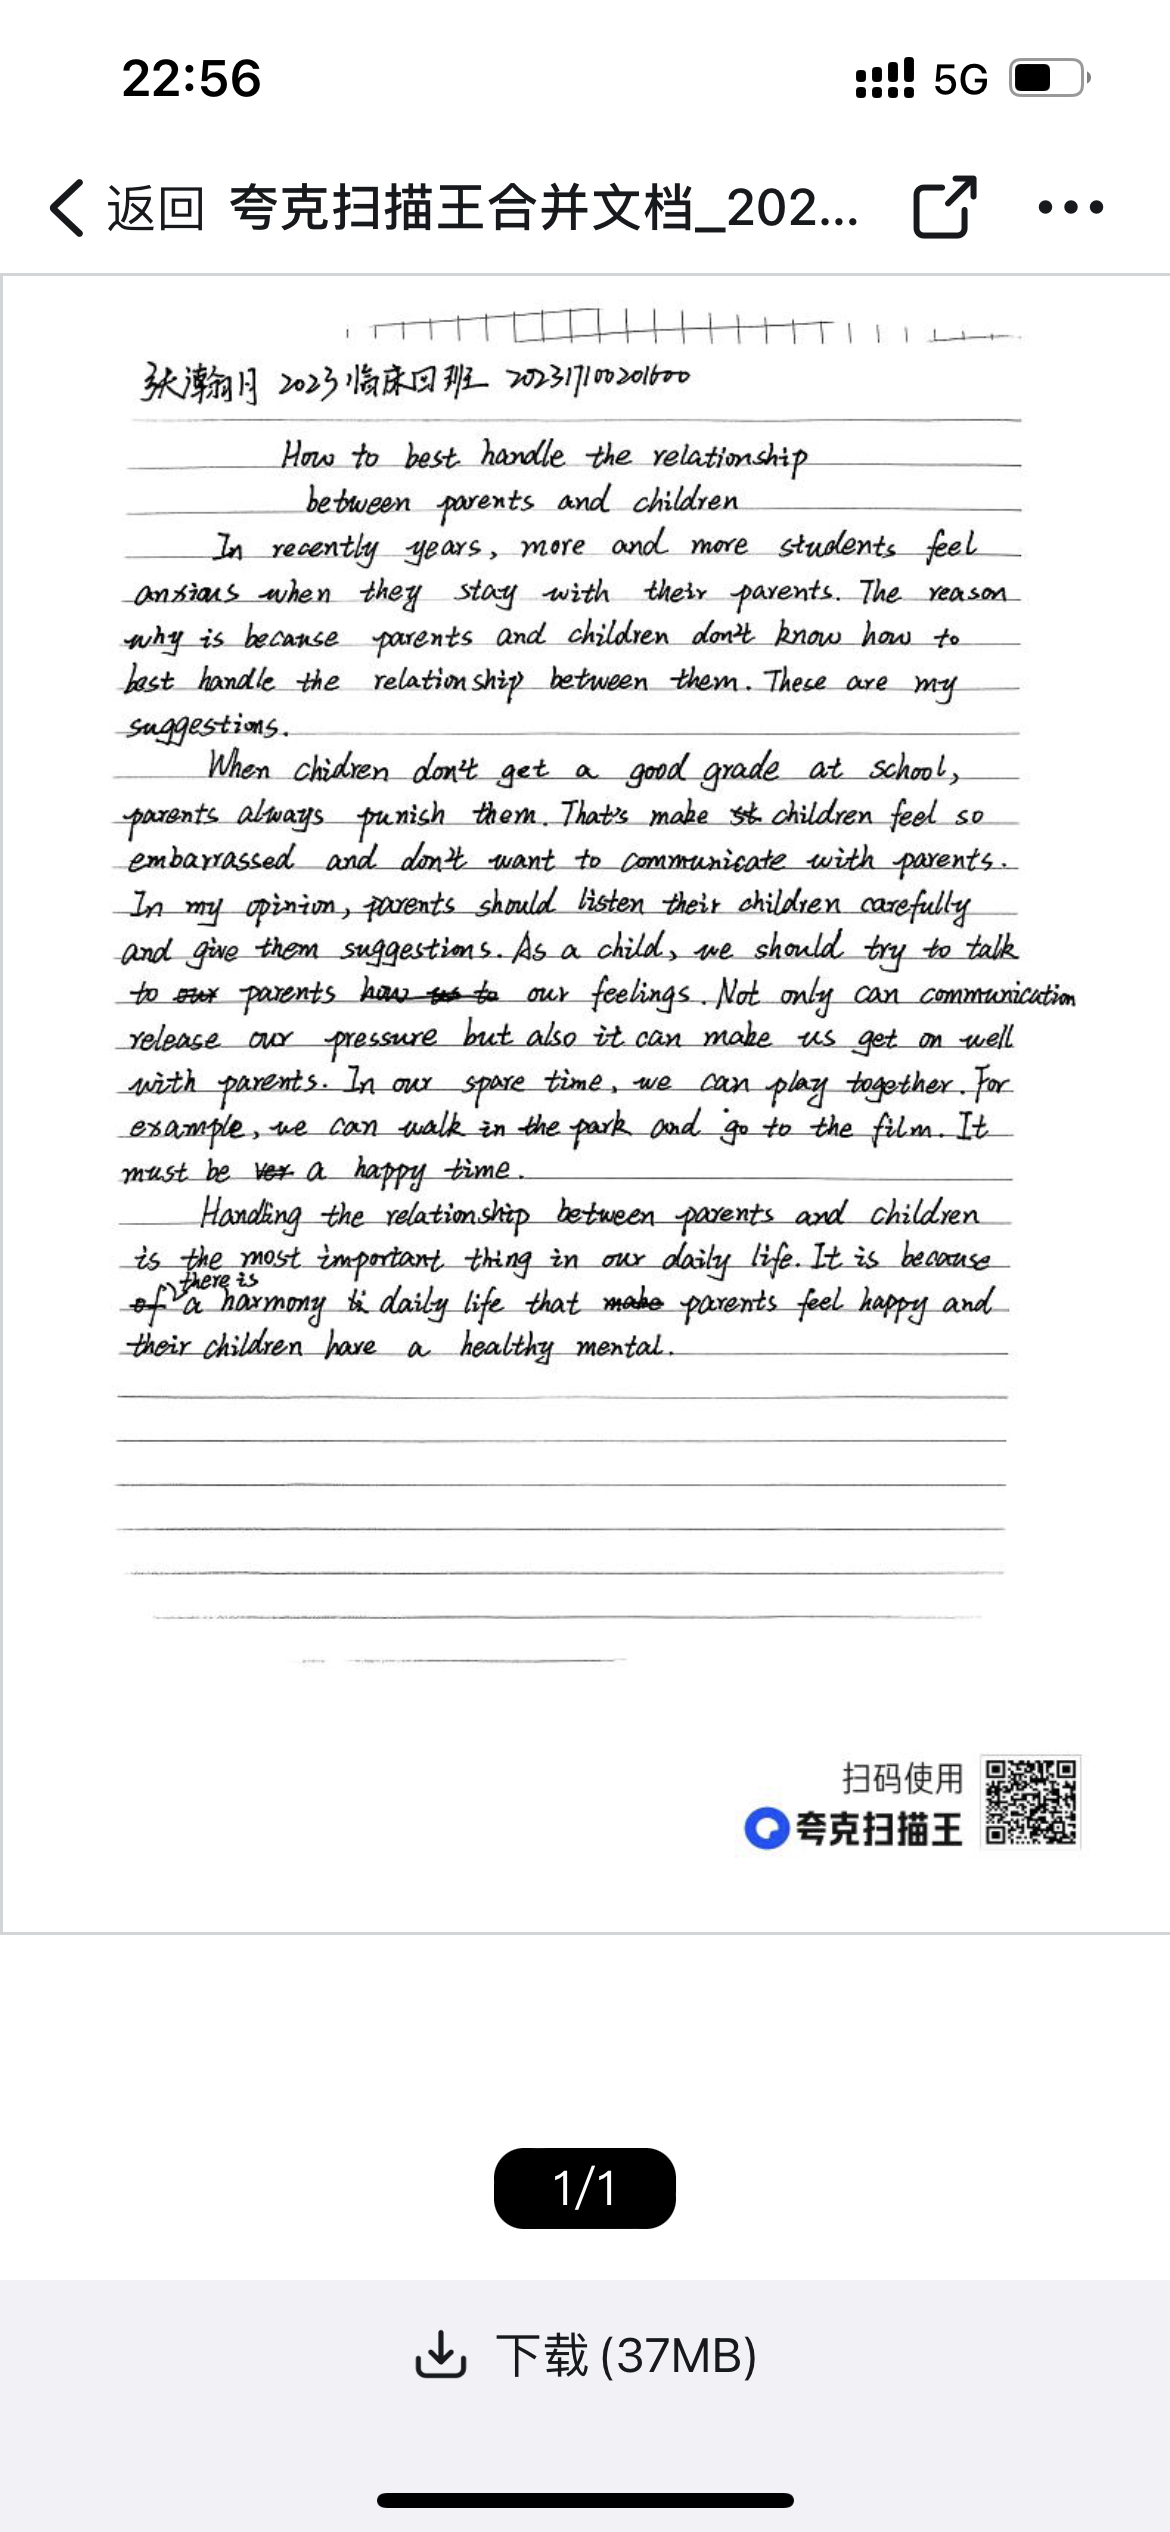 22:56
5G
返回 夸克扫描王合并文档_202...
张瀚月 2023临床四班 202317100201600
How to best handle the relationship
between parents and children
In recently years, more and more students feel
anxious when they stay with their parents. The reason
why is because parents and children don't know how to
best handle the relationship between them. These are my
suggestions.
When chidren don't get a good grade at school,
parents always punish them. That's make st children feel so
embarrassed and don't want to communicate with parents.
In my opinion, parents should listen their children carefully
and give them suggestions. As a child, we should try to talk
to our parents how us to our feelings. Not only can communication
release our pressure but also it can make us get on well
with parents. In our spare time, we can play together. For
example, we can walk in the park and go to the film. It
must be ver a happy time.
Handling the relationship between parents and children
is the most important thing in our daily life. It is because
there is
of a harmony daily life that make parents feel happy and
their children have a healthy mental.
扫码使用
夸克扫描王
1/1
下载 (37MB)